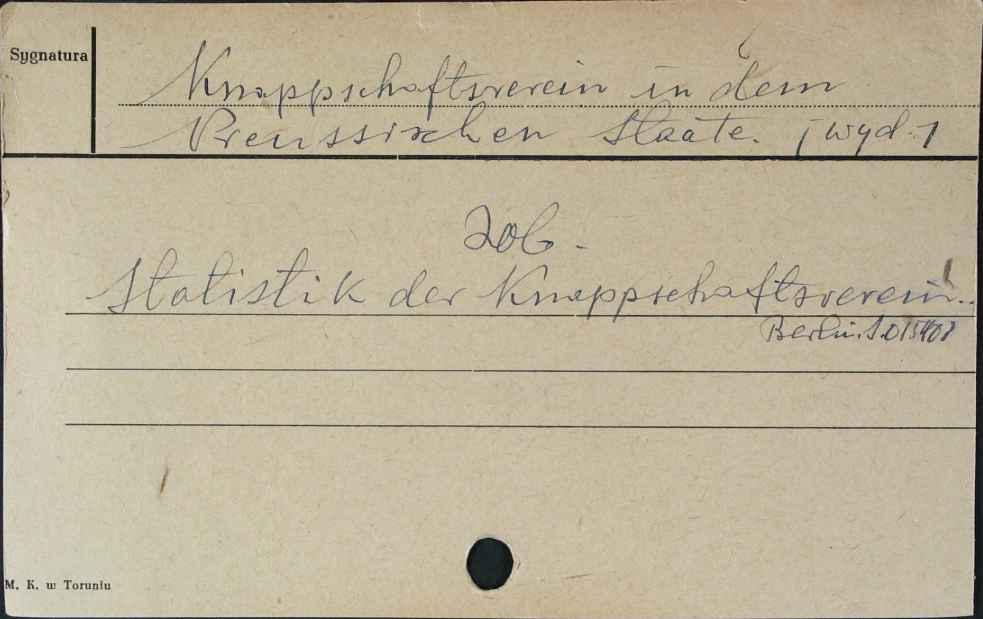 Sygnatura
Knappschaftsverein in dem
Preussischen Staate. [wyd.]
Zob.
Statistik der Knappschaftsverein..
Berlin.
M. K. w Toruniu